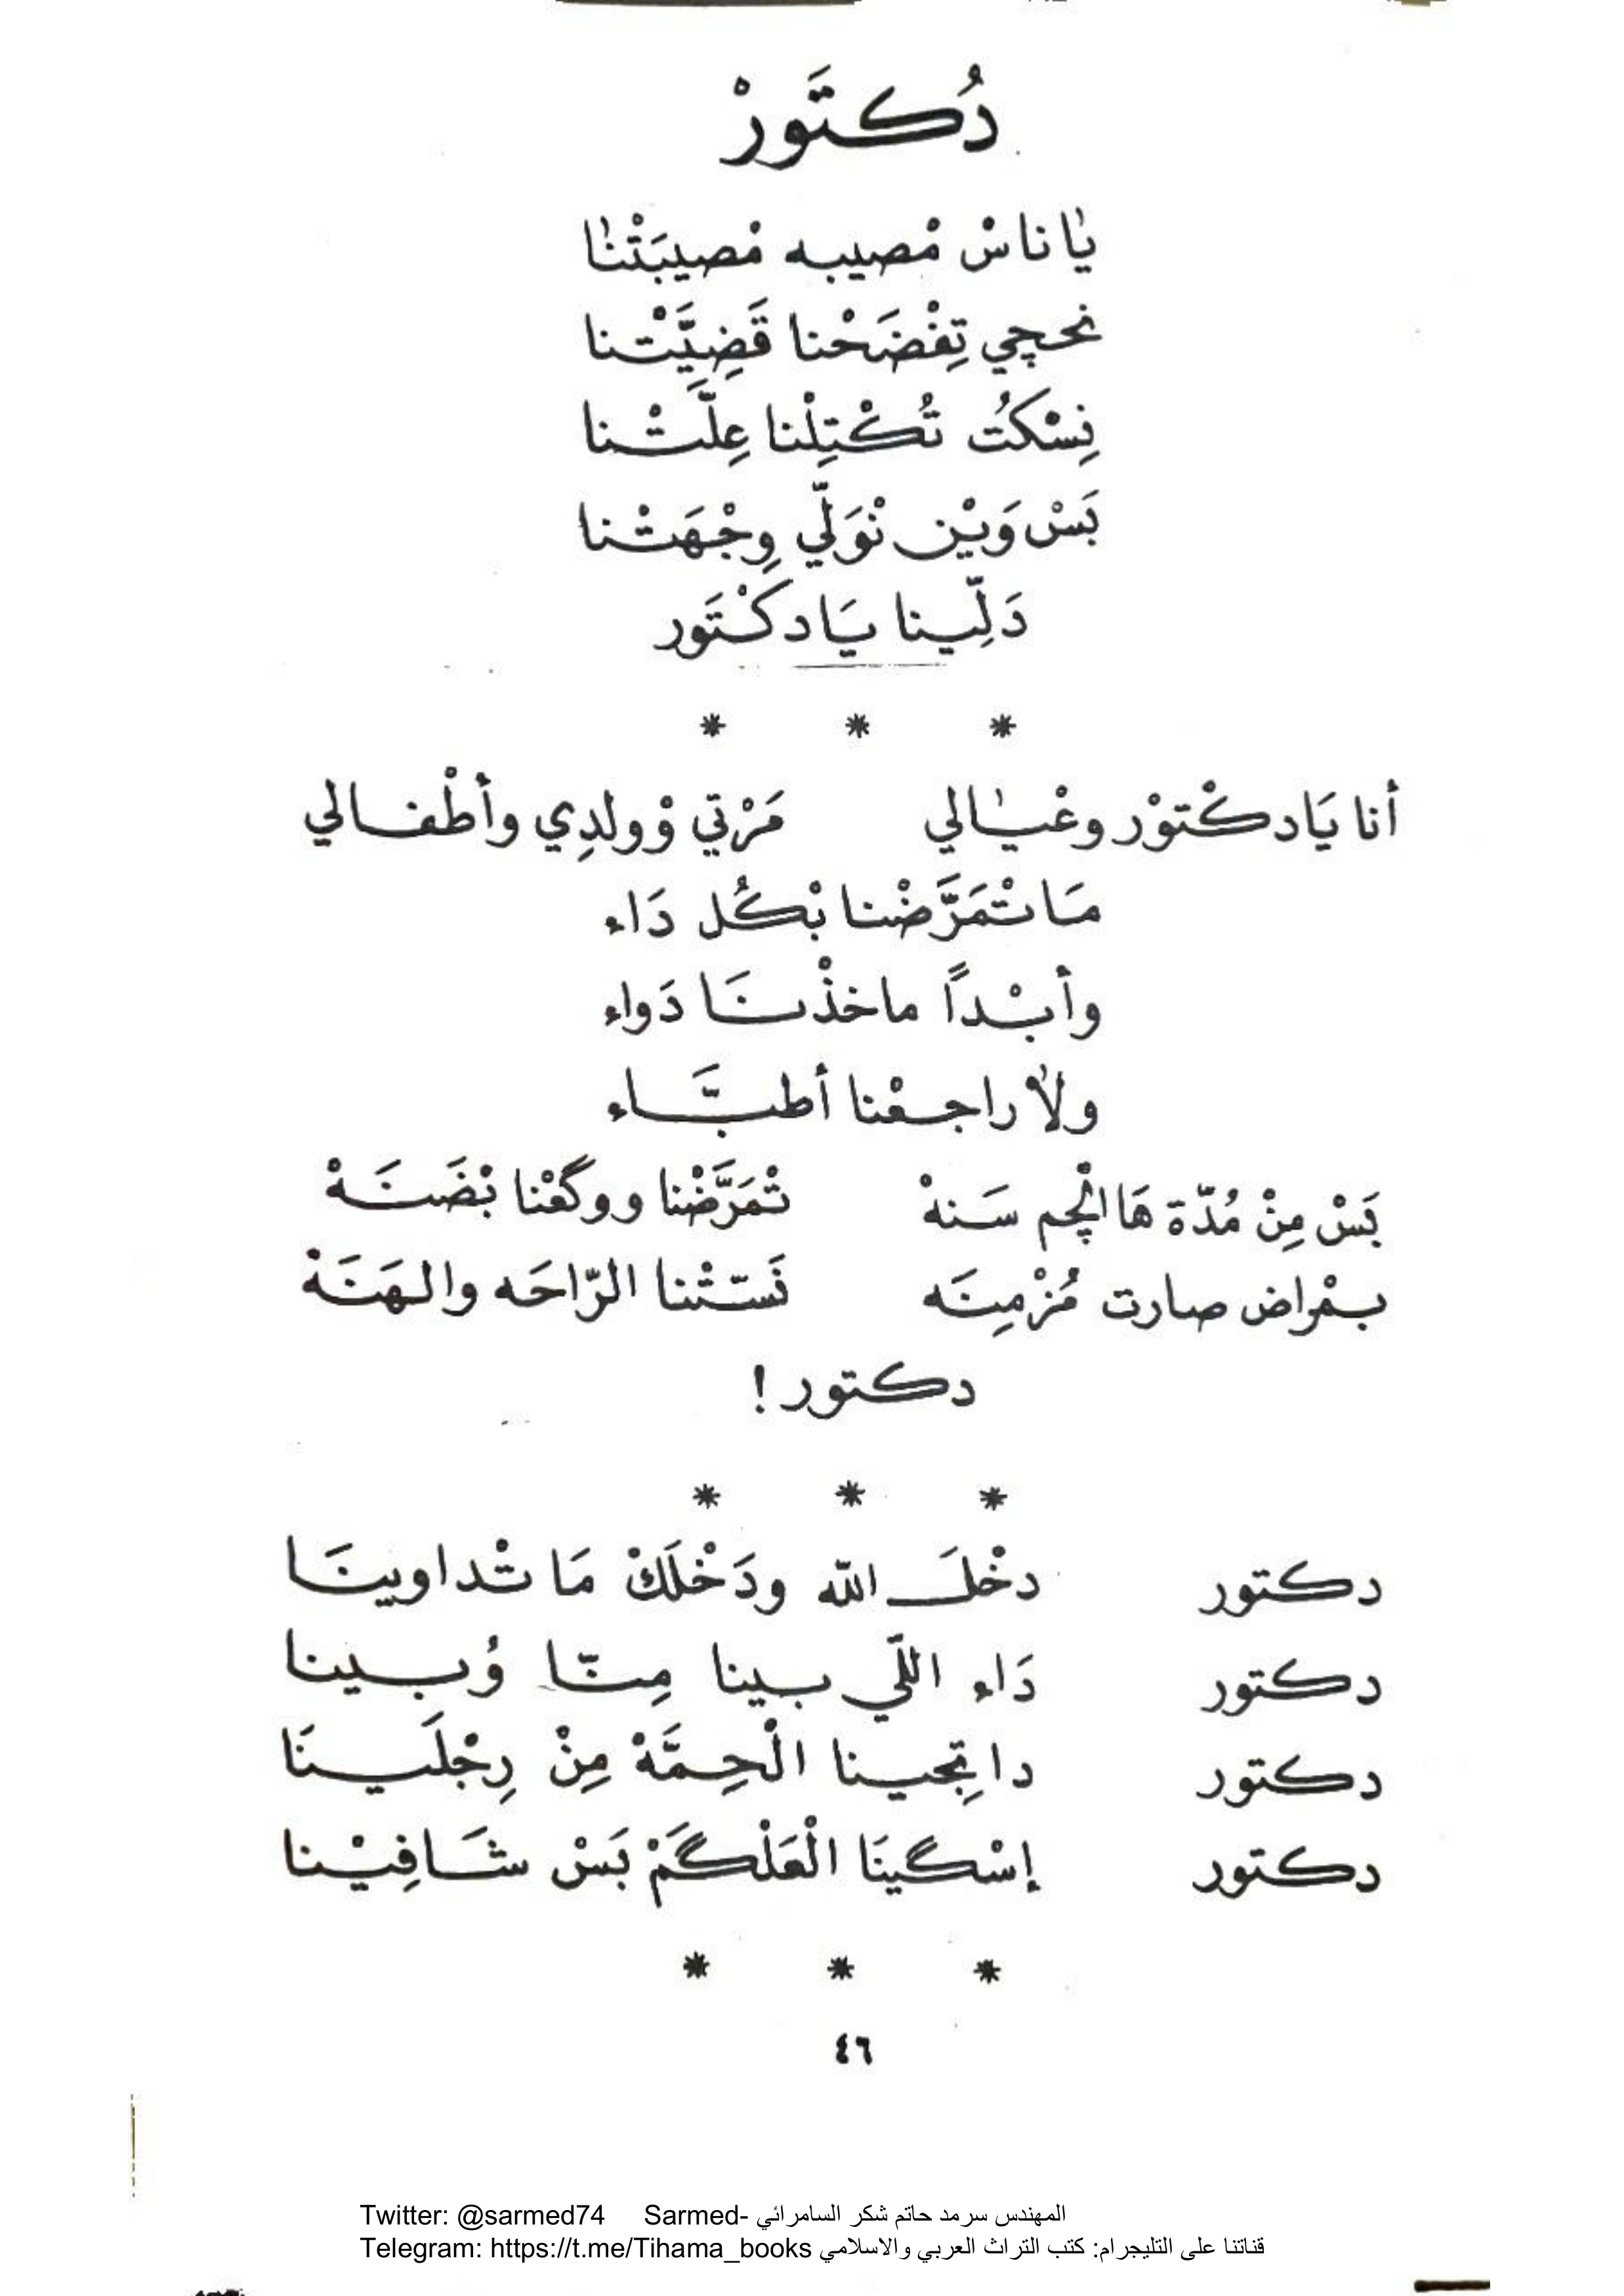 دُكتَورْ
يٰا ناسْ مْصيبه مْصيبَتْنٰا
نحچي تِفْضَحْنا قَضِيَّتْنا
نِسْكُت تُكْتِلْنا عِلَّتْنا
بَسْ وَيْن نْوَلّي وِجْهَتْنا
دَلِّينا يَا دكْتَور
* * *
أنا يَا دكْتوْر وعْيٰالي مَرْتي وْولدِي وأطْفالي
مَا تْمَرَّضْنا بْكُل دَاء
وأبْداً ماخذْنَا دَواء
ولاْ راجعْنا أطبَّاء
بَسْ مِنْ مُدّة هَا الْچم سَنهْ تْمَرَّضْنا ووگعْنا بْضَنَهْ
بمْراض صارت مُزْمِنَه نَسّتْنا الرّاحَه والهَنَهْ
دكتور !
* * *
دكتور دخْلَ الله ودَخْلَكْ مَا تْداوينَا
دكتور دَاء اللّي بينا مِنّا وُبينا
دكتور دا تِجينا الْحِمَّهْ مِنْ رِجْلَينَا
دكتور إسْگينَا الْعَلْگَمْ بَسْ شَافِيْنا
* * *
٤٦
Twitter: @sarmed74 Sarmed- المهندس سرمد حاتم شكر السامرائي
Telegram: https://t.me/Tihama_books قناتنا على التليجرام: كتب التراث العربي والاسلامي